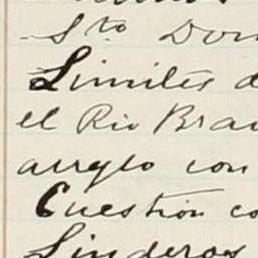 Sto Dom
Limites d
el Rio Brav
arrylo con
Cuestion co
Linderos